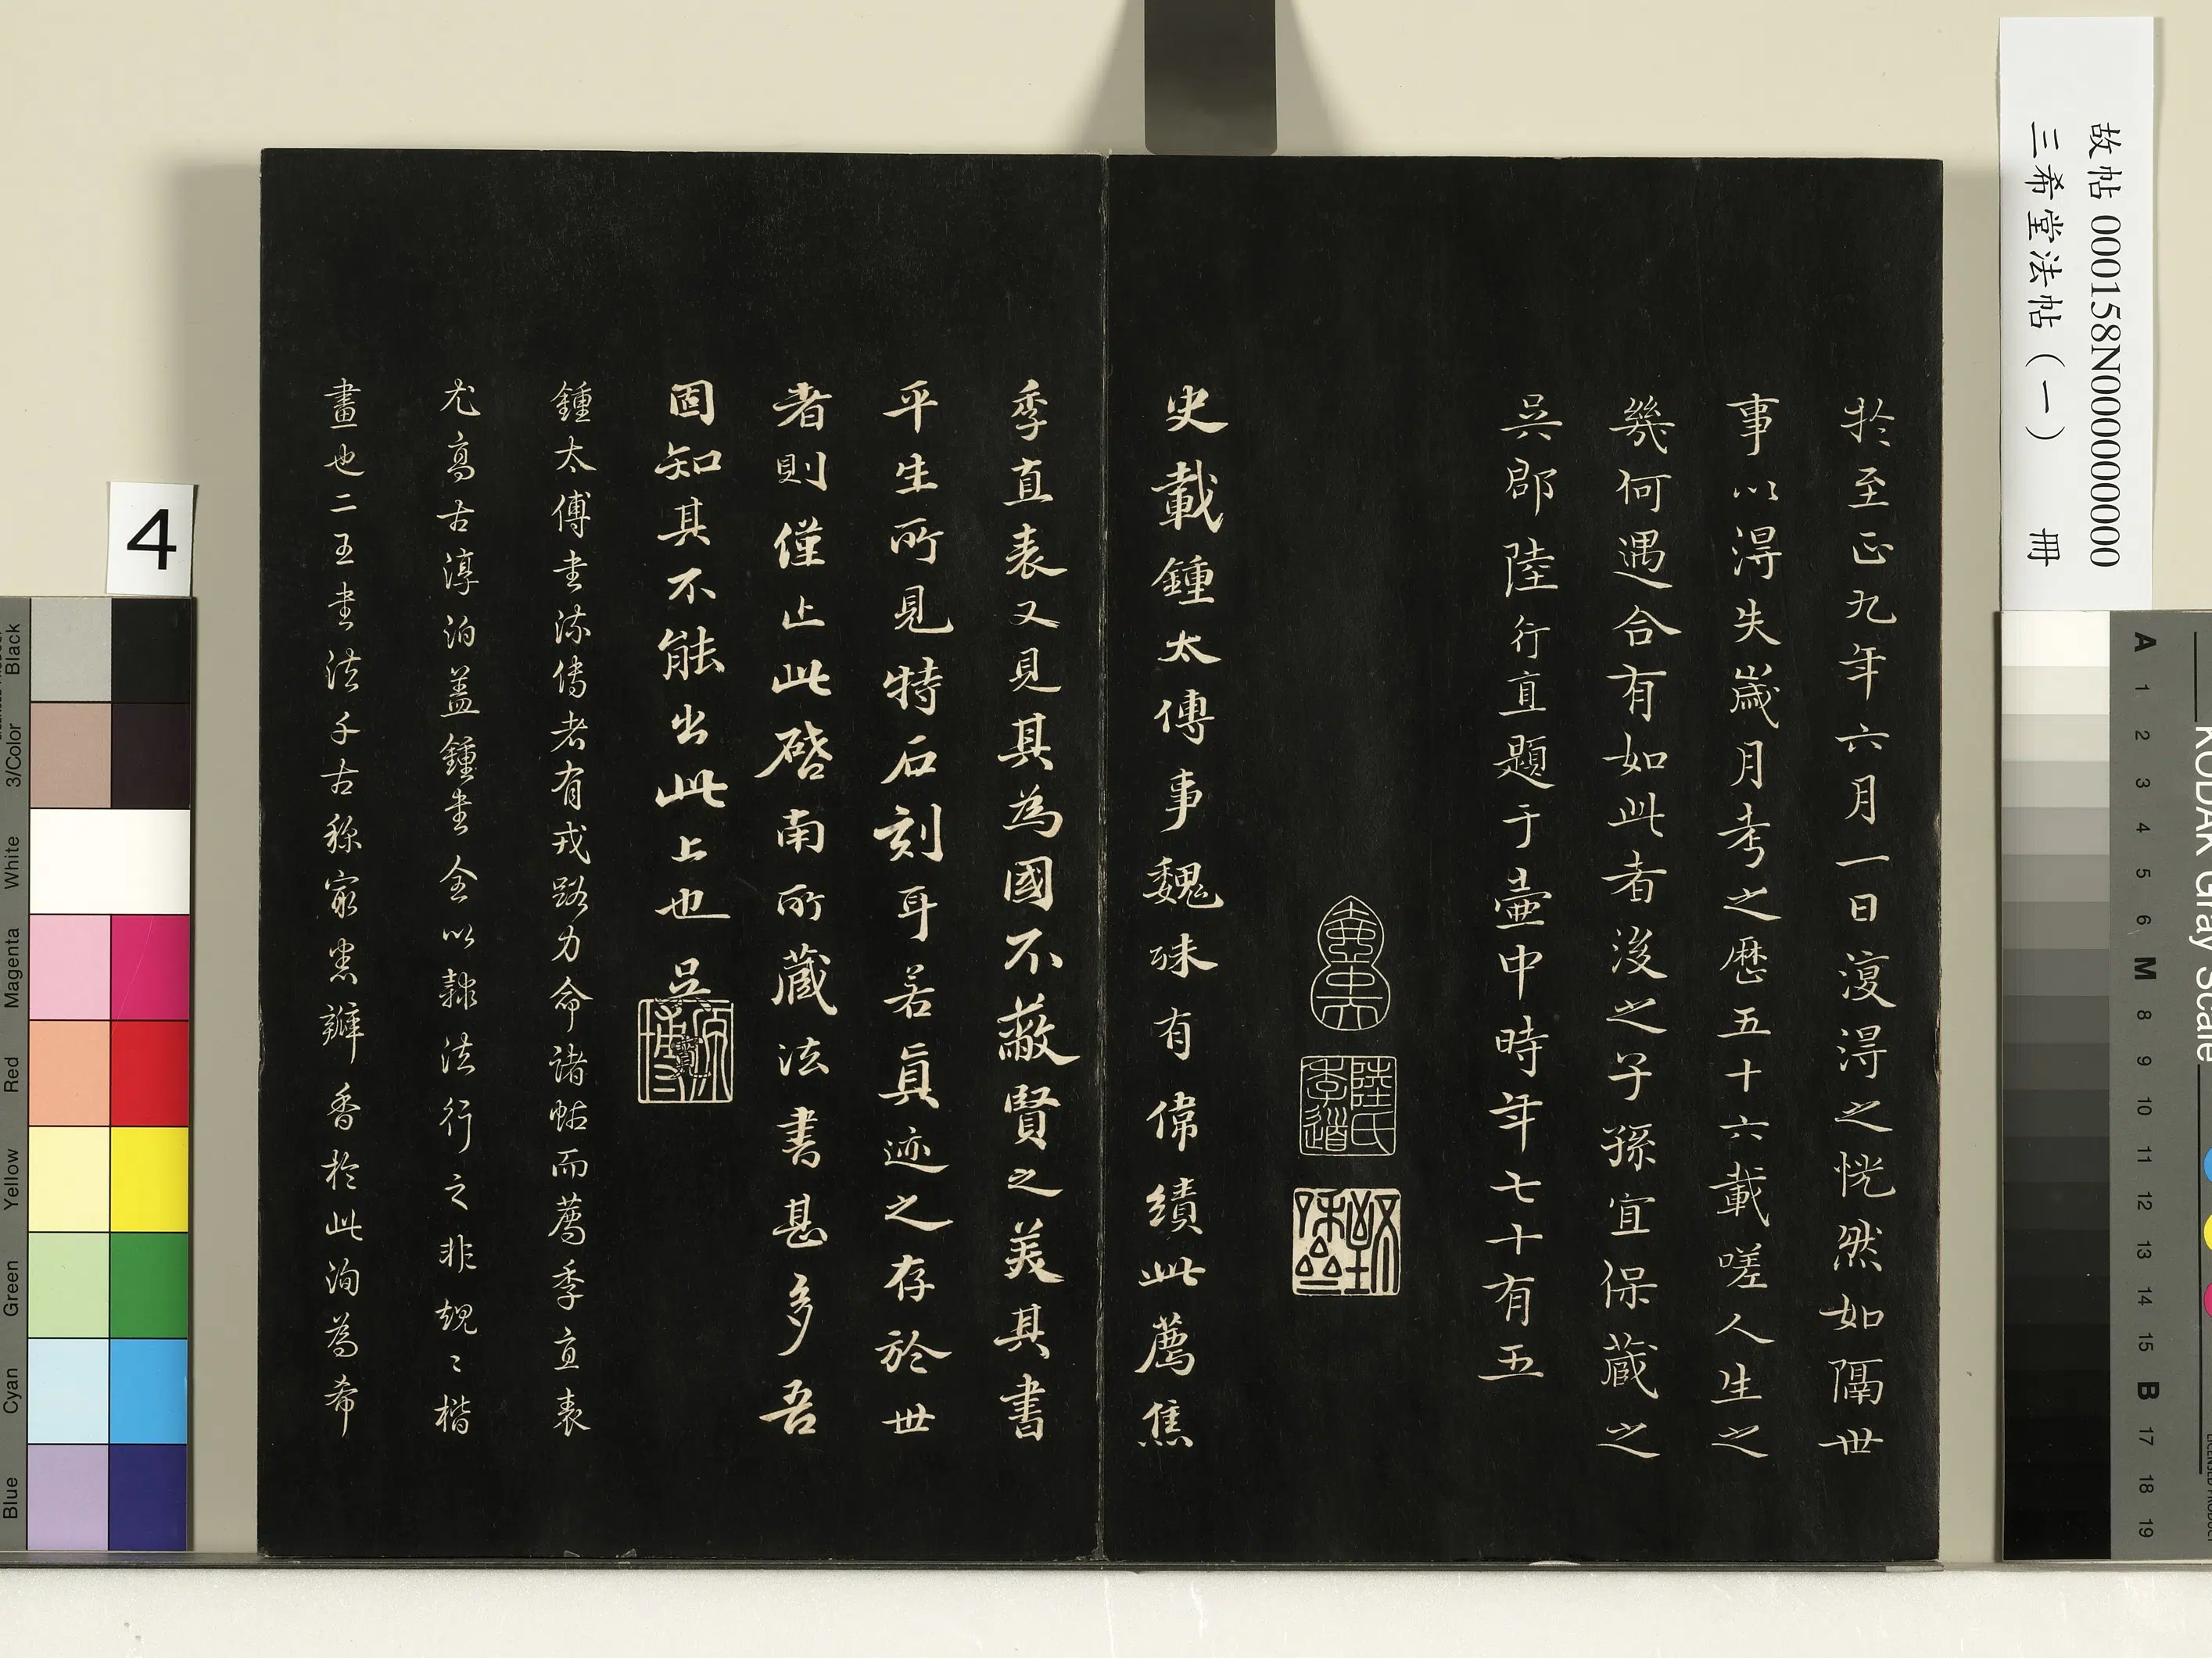 於至正九年六月一日復得之恍然如隔世
事以得失歲月考之歷五十六載嗟人生之
幾何遇合有如此者後之子孫宜保藏之
吳郡陸行直題于壺中時年七十有五
陸氏季道
史載鍾太傅事魏殊有偉績此薦焦
季直表又見其為國不蔽賢之美其書
平生所見特石刻耳若真迹之存於世
者則僅止此啓南所藏法書甚多吾
固知其不能出此上也吳寬
原博
鍾太傅書流傳者有戎路力命諸帖而薦季直表
尤高古淳泊蓋鍾書全以隸法行之非規〻楷
畫也二王書法千古稱最悉瓣香於此洵為希
故帖 000158N000000000
三希堂法帖（一） 冊
4
Black
3/Color
White
Magenta
Red
Yellow
Green
Cyan
Blue
KODAK Gray Scale
A 1 2 3 4 5 6 M 8 9 10 11 12 13 14 15 B 17 18 19